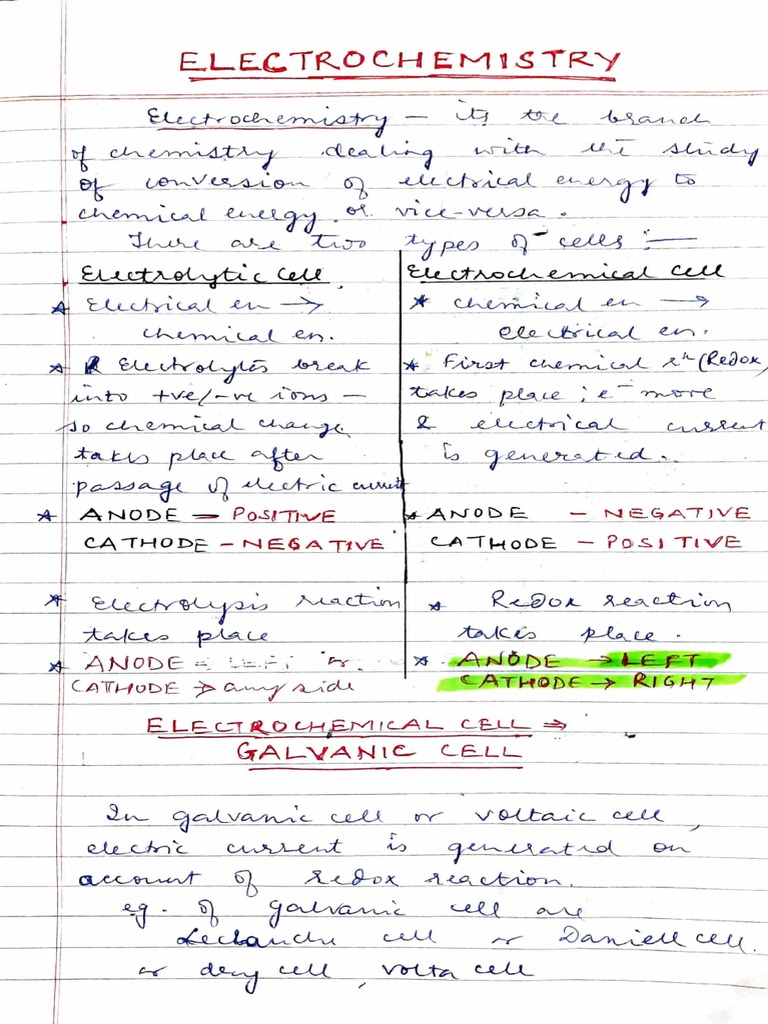 ELECTROCHEMISTRY
Electrochemistry – its the branch
of chemistry dealing with the study
of conversion of electrical energy to
chemical energy or vice-versa.
There are two types of cells :—
Electrolytic cell
* Electrical en →
chemical en.
* Electrolytes break
into +ve/-ve ions –
so chemical change
takes place after
passage of electric current
* ANODE – POSITIVE
CATHODE – NEGATIVE
* Electrolysis reaction
takes place
* ANODE = LEFT or
CATHODE → any side
Electrochemical cell
* chemical en →
electrical en.
* First chemical rⁿ (Redox)
takes place ; e⁻ move
& electrical current
is generated.
* ANODE – NEGATIVE
CATHODE – POSITIVE
* Redox reaction
takes place.
* ANODE → LEFT
CATHODE → RIGHT
ELECTROCHEMICAL CELL ⇒
GALVANIC CELL
In galvanic cell or voltaic cell,
electric current is generated on
account of redox reaction.
eg. of galvanic cell are
Leclanche cell or Daniell cell.
or dry cell, volta cell